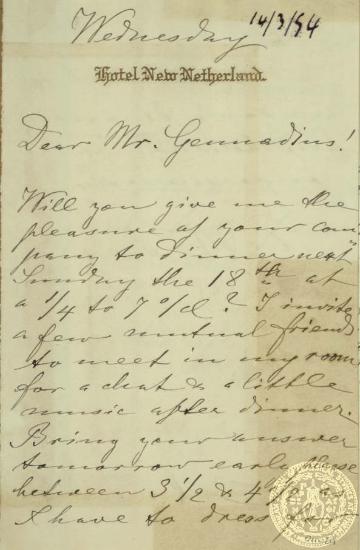 Wednesday 14/3/94
Hotel New Netherland.
Dear Mr. Gennadius!
Will you give me the
pleasure of your com-
pany to dinner next
Sunday the 18th at
a 1/4 to 7 o/cl? I invite
a few mutual friends
to meet in my room
for a chat & a little
music after dinner.
Bring your answer
tomorrow early
between 3 1/2 & 4
I have to dress